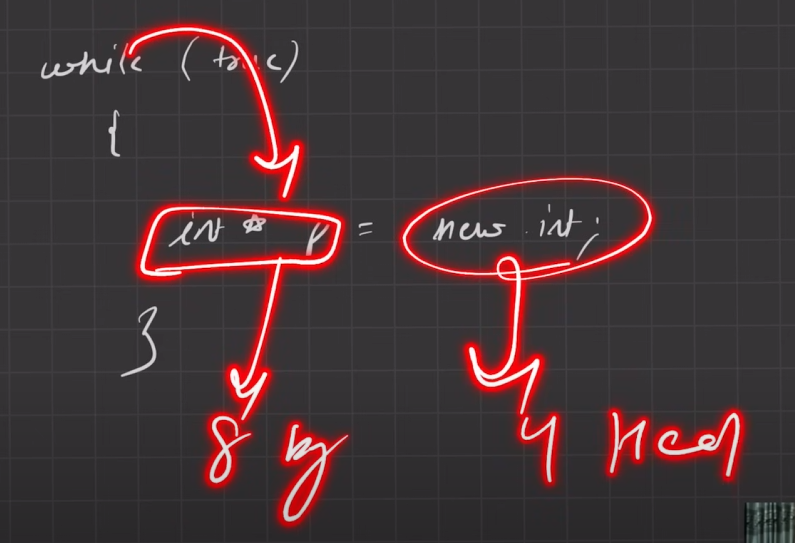 while (true)
{
int * p = new int;
}
8 by 4 Heap